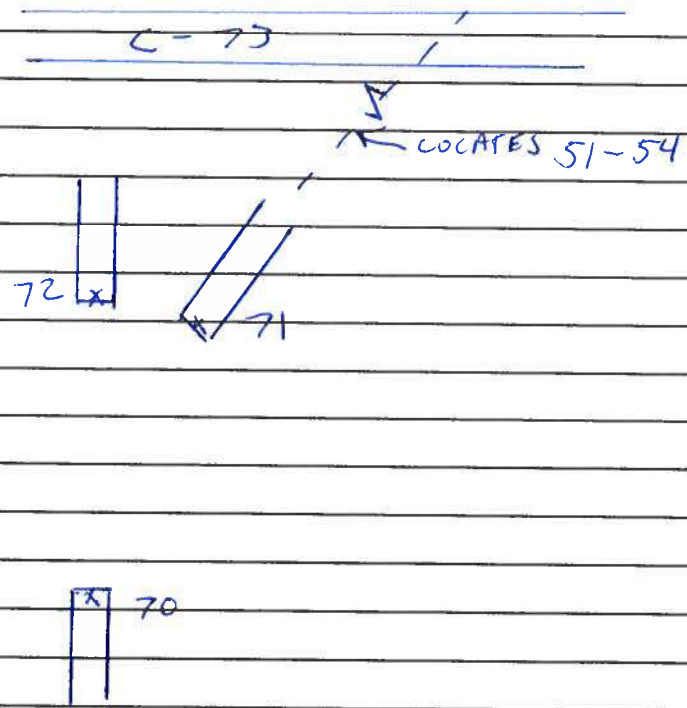 C-73
LOCATES 51-54
72 x
x 71
x 70